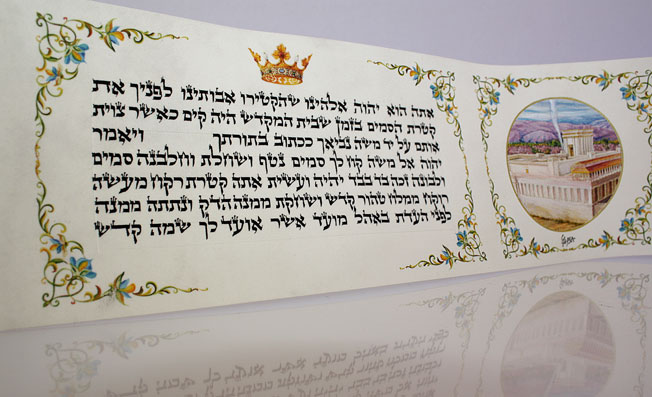 אתה הוא יהוה אלהינו שהקטירו אבותינו לפניך את
קטרת הסמים בזמן שבית המקדש היה קים כאשר צוית
אותם על יד משה נביאך ככתוב בתורתך ויאמר
יהוה אל משה קח לך סמים נטף ושחלת וחלבנה סמים
ולבונה זכה בד בבד יהיה ועשית אתה קטרת רקח מעשה
רוקח ממלח טהור קדש ושחקת ממנה הדק ונתתה ממנה
לפני העדת באהל מועד אשר אועד לך שמה קדש